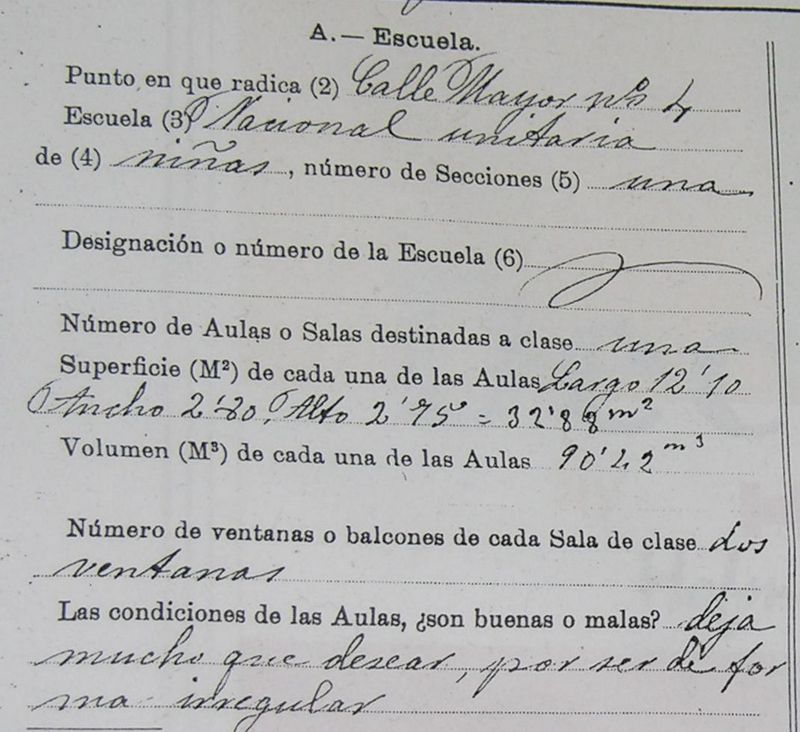 A. — Escuela.
Punto en que radica (2) Calle Mayor nº 4
Escuela (3) Nacional unitaria
de (4) niñas, número de Secciones (5) una
Designación o número de la Escuela (6)
Número de Aulas o Salas destinadas a clase una
Superficie (M²) de cada una de las Aulas Largo 12'10
Ancho 2'80, Alto 2'75 = 32'88 m²
Volumen (M³) de cada una de las Aulas 90'42 m³
Número de ventanas o balcones de cada Sala de clase dos
ventanas
Las condiciones de las Aulas, ¿son buenas o malas? deja
mucho que desear, por ser de for
ma irregular